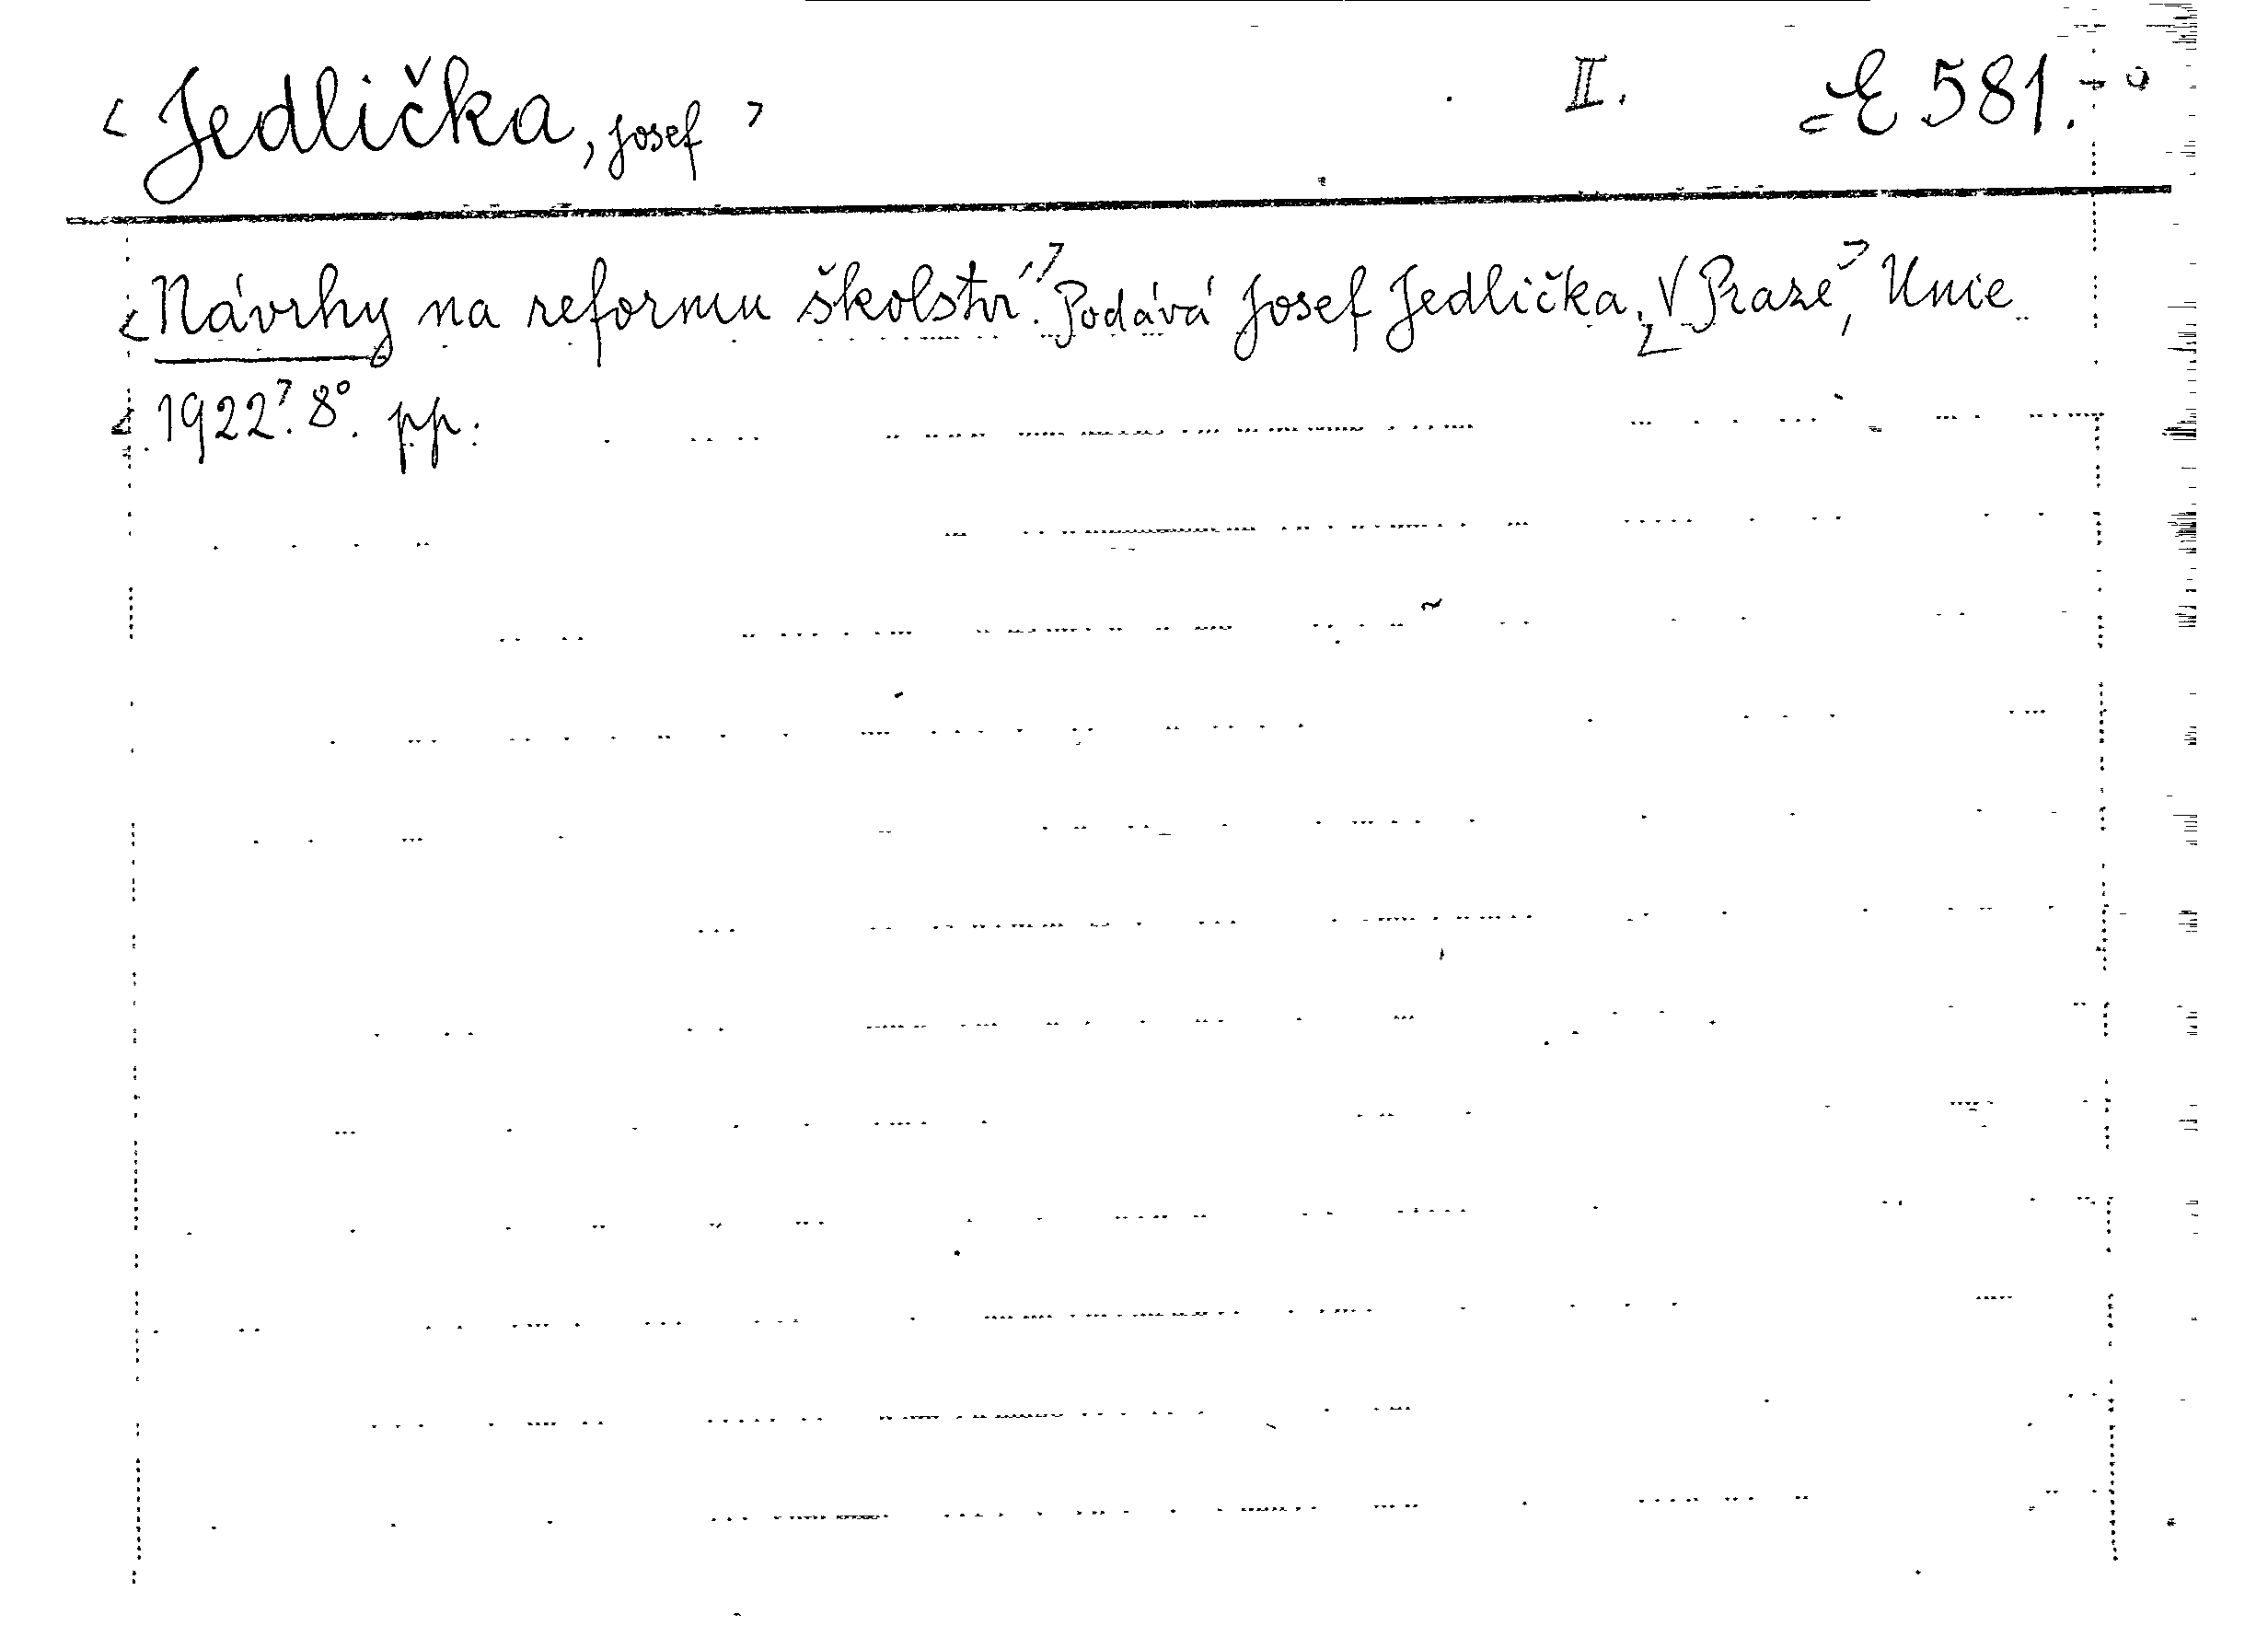 Jedlička, Josef II. E 581.
Návrhy na reformu školství. Podává Josef Jedlička, V Praze, Unie
1922. 8°. pp.